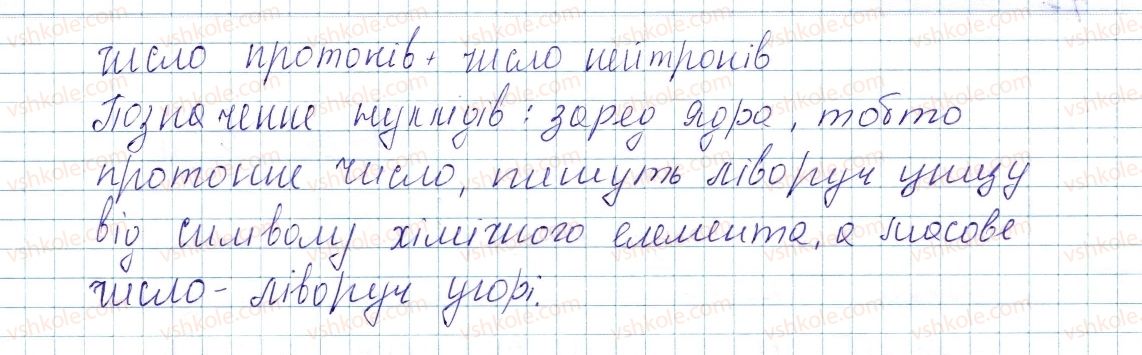 число протонів + число нейтронів
Позначення нуклідів: заряд ядра, тобто
протонне число, пишуть ліворуч унизу
від символу хімічного елемента, а масове
число - ліворуч угорі.